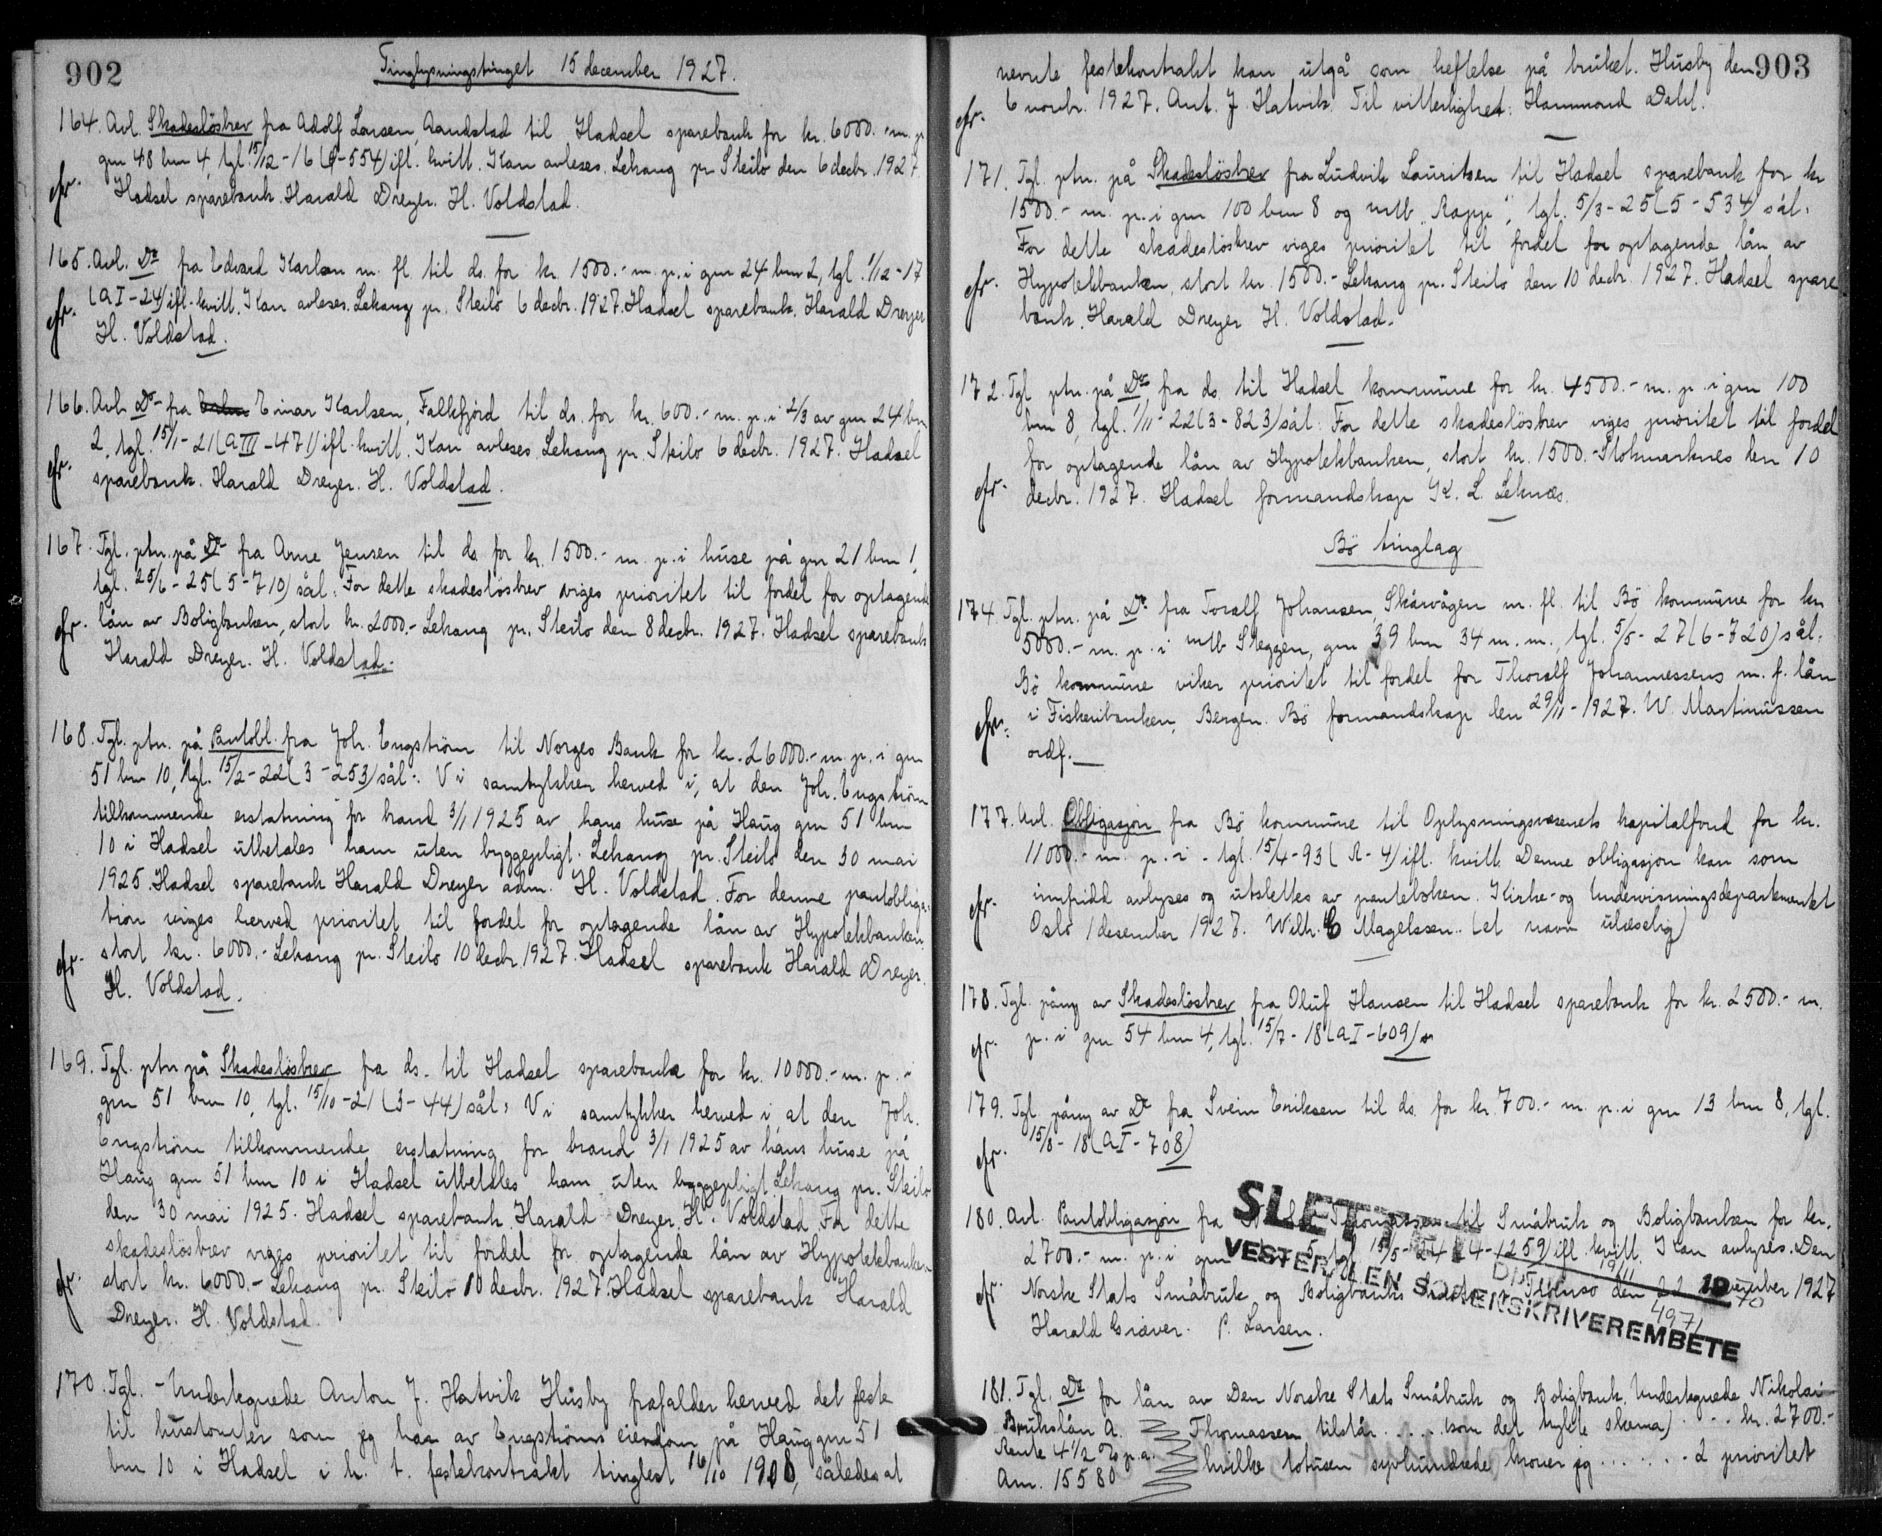 902
Tinglysningstinget 15 december 1927.
164. Avl. Skadesløsbrev fra Adolf Larsen, Aandstad til Hadsel sparebank for kr. 6000.- m. p.
gnr 48 bnr 4, tgl. 15/12-16 (9-554) ifl. kvitt. Kan avleses. Lekang pr Steilo den 6 decbr. 1927.
cfr. Hadsel sparebank. Harald Dreyer. H. Voldstad.
165. Avl. Do fra Edvard Karlsen m. fl. til ds. for kr. 1500.- m. p. i gnr 24 bnr 2, tgl. 1/12-17
cfr. (a I-24) ifl. kvitt. Kan avleses. Lekang pr. Steilo 6 decbr. 1927. Hadsel sparebank. Harald Dreyer
H. Voldstad.
166. Avl. Do fra Einar Karlsen, Falkfjord til ds. for kr. 600.- m. p. i 2/3 av gnr 24 bnr
2, tgl. 15/1-21 (a III-471) ifl. kvitt. Kan avleses Lekang pr. Steilo 6 decbr. 1927. Hadsel
cfr. sparebank. Harald Dreyer. H. Voldstad.
167. Tgl. ptn. på Do fra Arne Jensen til ds. for kr. 1500.- m. p. i huse på gnr 21 bnr 1,
tgl. 25/6-25 (5-710) sål: For dette skadesløsbrev viges prioritet til fordel for optagende
cfr. lån av Boligbanken, stort kr. 2000.- Lekang pr. Steilo den 8 decbr. 1927. Hadsel sparebank
Harald Dreyer. H. Voldstad.
168. Tgl. ptn. på Pantobl. fra Joh. Engstrøm til Norges Bank for kr. 26000.- m. p. i gnr
51 bnr 10, tgl. 15/2-22 (3-253) sål: Vi samtykker herved i, at den Joh. Engstrøm
tilkommende erstatning for brand 3/1 1925 av hans huse på Haug gnr 51 bnr
10 i Hadsel utbetales ham uten byggepligt. Lekang pr. Steilo den 30 mai
1925. Hadsel sparebank Harald Dreyer adm. H. Voldstad. For denne pantobliga-
tion viges herved prioritet til fordel for optagende lån av Hypotekbanken
cfr. stort kr. 6000.- Lekang pr. Steilo 10 decbr. 1927. Hadsel sparebank Harald Dreyer.
H. Voldstad.
169. Tgl. ptn på Skadesløsbrev fra ds. til Hadsel sparebank for kr. 10000.- m. p. i
gnr 51 bnr 10, tgl. 15/10-21 (3-44) sål: Vi samtykker herved i, at den Joh.
Engstrøm tilkommende erstatning for brand 3/1 1925 av hans huse på
Haug gnr 51 bnr 10 i Hadsel utbetales ham uten byggepligt Lekang pr. Steilo
den 30 mai 1925. Hadsel sparebank Harald Dreyer. H. Voldstad For dette
skadesløsbrev viges prioritet til fordel for optagende lån av Hypotekbanken
cfr. stort kr. 6000.- Lekang pr. Steilo 10 decbr. 1927. Hadsel sparebank Harald
Dreyer. H. Voldstad.
170. Tgl. - Undertegnede Anton J. Hatvik Husby frafalder herved det feste
til hustomter som jeg har av Engstrøms eiendom på Haug gnr 51
bnr 10 i Hadsel i h. t. festekontrakt tinglest 16/10 1908, således at
903
nevnte festekontrakt kan utgå som heftelse på bruket. Husby den
cfr. 6 novbr. 1927. Ant. J. Hatvik. Til vitterlighet: Hammond Dahl.
171. Tgl. ptn. på Skadesløsbrev fra Ludvik Lauritsen til Hadsel sparebank for kr
1500.- m. p. i gnr 100 bnr 8 og mtb "Rapp", tgl. 5/3-25 (5-534) sål:
For dette skadesløsbrev viges prioritet til fordel for optagende lån av
cfr. Hypotekbanken, stort kr. 1500.- Lekang pr. Steilo den 10 decbr. 1927. Hadsel spare
bank. Harald Dreyer H. Voldstad.
172. Tgl ptn. på Do fra ds. til Hadsel kommune for kr. 4500.- m. p. i gnr 100
bnr 8, tgl. 1/11-22 (3-823) sål: For dette skadesløsbrev viges prioritet til fordel
for optagende lån av Hypotekbanken, stort kr. 1500.- Stokmarknes den 10
cfr. decbr. 1927. Hadsel formandskap K. L. Leknæs.
Bø tinglag
174. Tgl. ptn. på Do fra Toralf Johansen, Skårvågen m. fl. til Bø kommune for kr.
5000.- m. p. i mtb Skeggen, gnr 39 bnr 34 m. m., tgl. 5/5-27 (6-720) sål:
Bø kommune viker prioritet til fordel for Thoralf Johannessens m. f. lån
cfr. i Fiskeribanken, Bergen. Bø formandskap den 29/11-1927. W. Martinussen
ordf.
177. Avl. Obligasjon fra Bø kommune til Oplysningsvæsenets kapitalfond for kr.
11000.- m. p. i - tgl. 15/4-93 (A-4) ifl. kvitt. Denne obligasjon kan som
cfr. innfridd avlyses og utslettes av panteboken. Kirke- og Undervisningsdepartementet
Oslo 1 desember 1927. Wilh. C Magelssen. (et navn uleselig)
178. Tgl. påny av Skadesløsbrev fra Oluf Hansen til Hadsel sparebank for kr. 2500.- m.
cfr. p. i gnr 54 bnr 4, tgl. 15/7-18 (a I-609)
179. Tgl. påny av Do fra Svein Eriksen til ds. for kr. 700.- m. p. i gnr 13 bnr 8, tgl.
cfr. 15/8-18 (a I-708)
180. Avl. Pantobligasjon fra Thomassen til Småbruk og Boligbanken for kr.
2700.- m. p. i gnr 5 tgl. 15/5-24 (4-1259) ifl. kvitt. Kan avlyses. Den
cfr. Norske Stats Småbruk og Boligbanks Tromsø den 22 november 1927
Harald Græver. P. Larsen.
SLETTET
19/11 1970
4971
VESTERÅLEN SORENSKRIVEREMBETE
181. Tgl. Do for lån av Den Norske Stats Småbruk og Boligbank. Undertegnede Nikolai
Brukslån A. Thomassen tilstår ..... (som det trykte skema) ... kr. 2700.-
Rente 4 1/2 % p.a. hvilke totusen syvhundrede kroner jeg ....... 2 prioritet
Anr. 15580